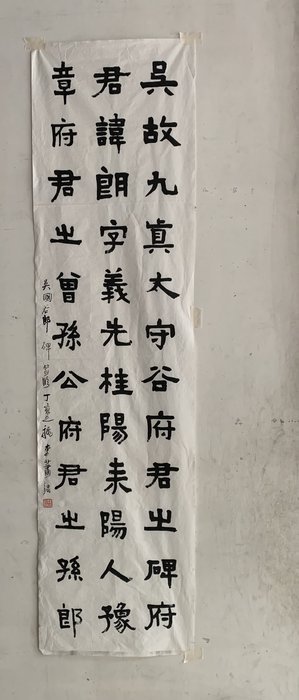 吳故九真太守谷府君之碑府
君諱朗字義先桂陽耒陽人豫
章府君之曾孫公府君之孫郎
吳國谷郎碑